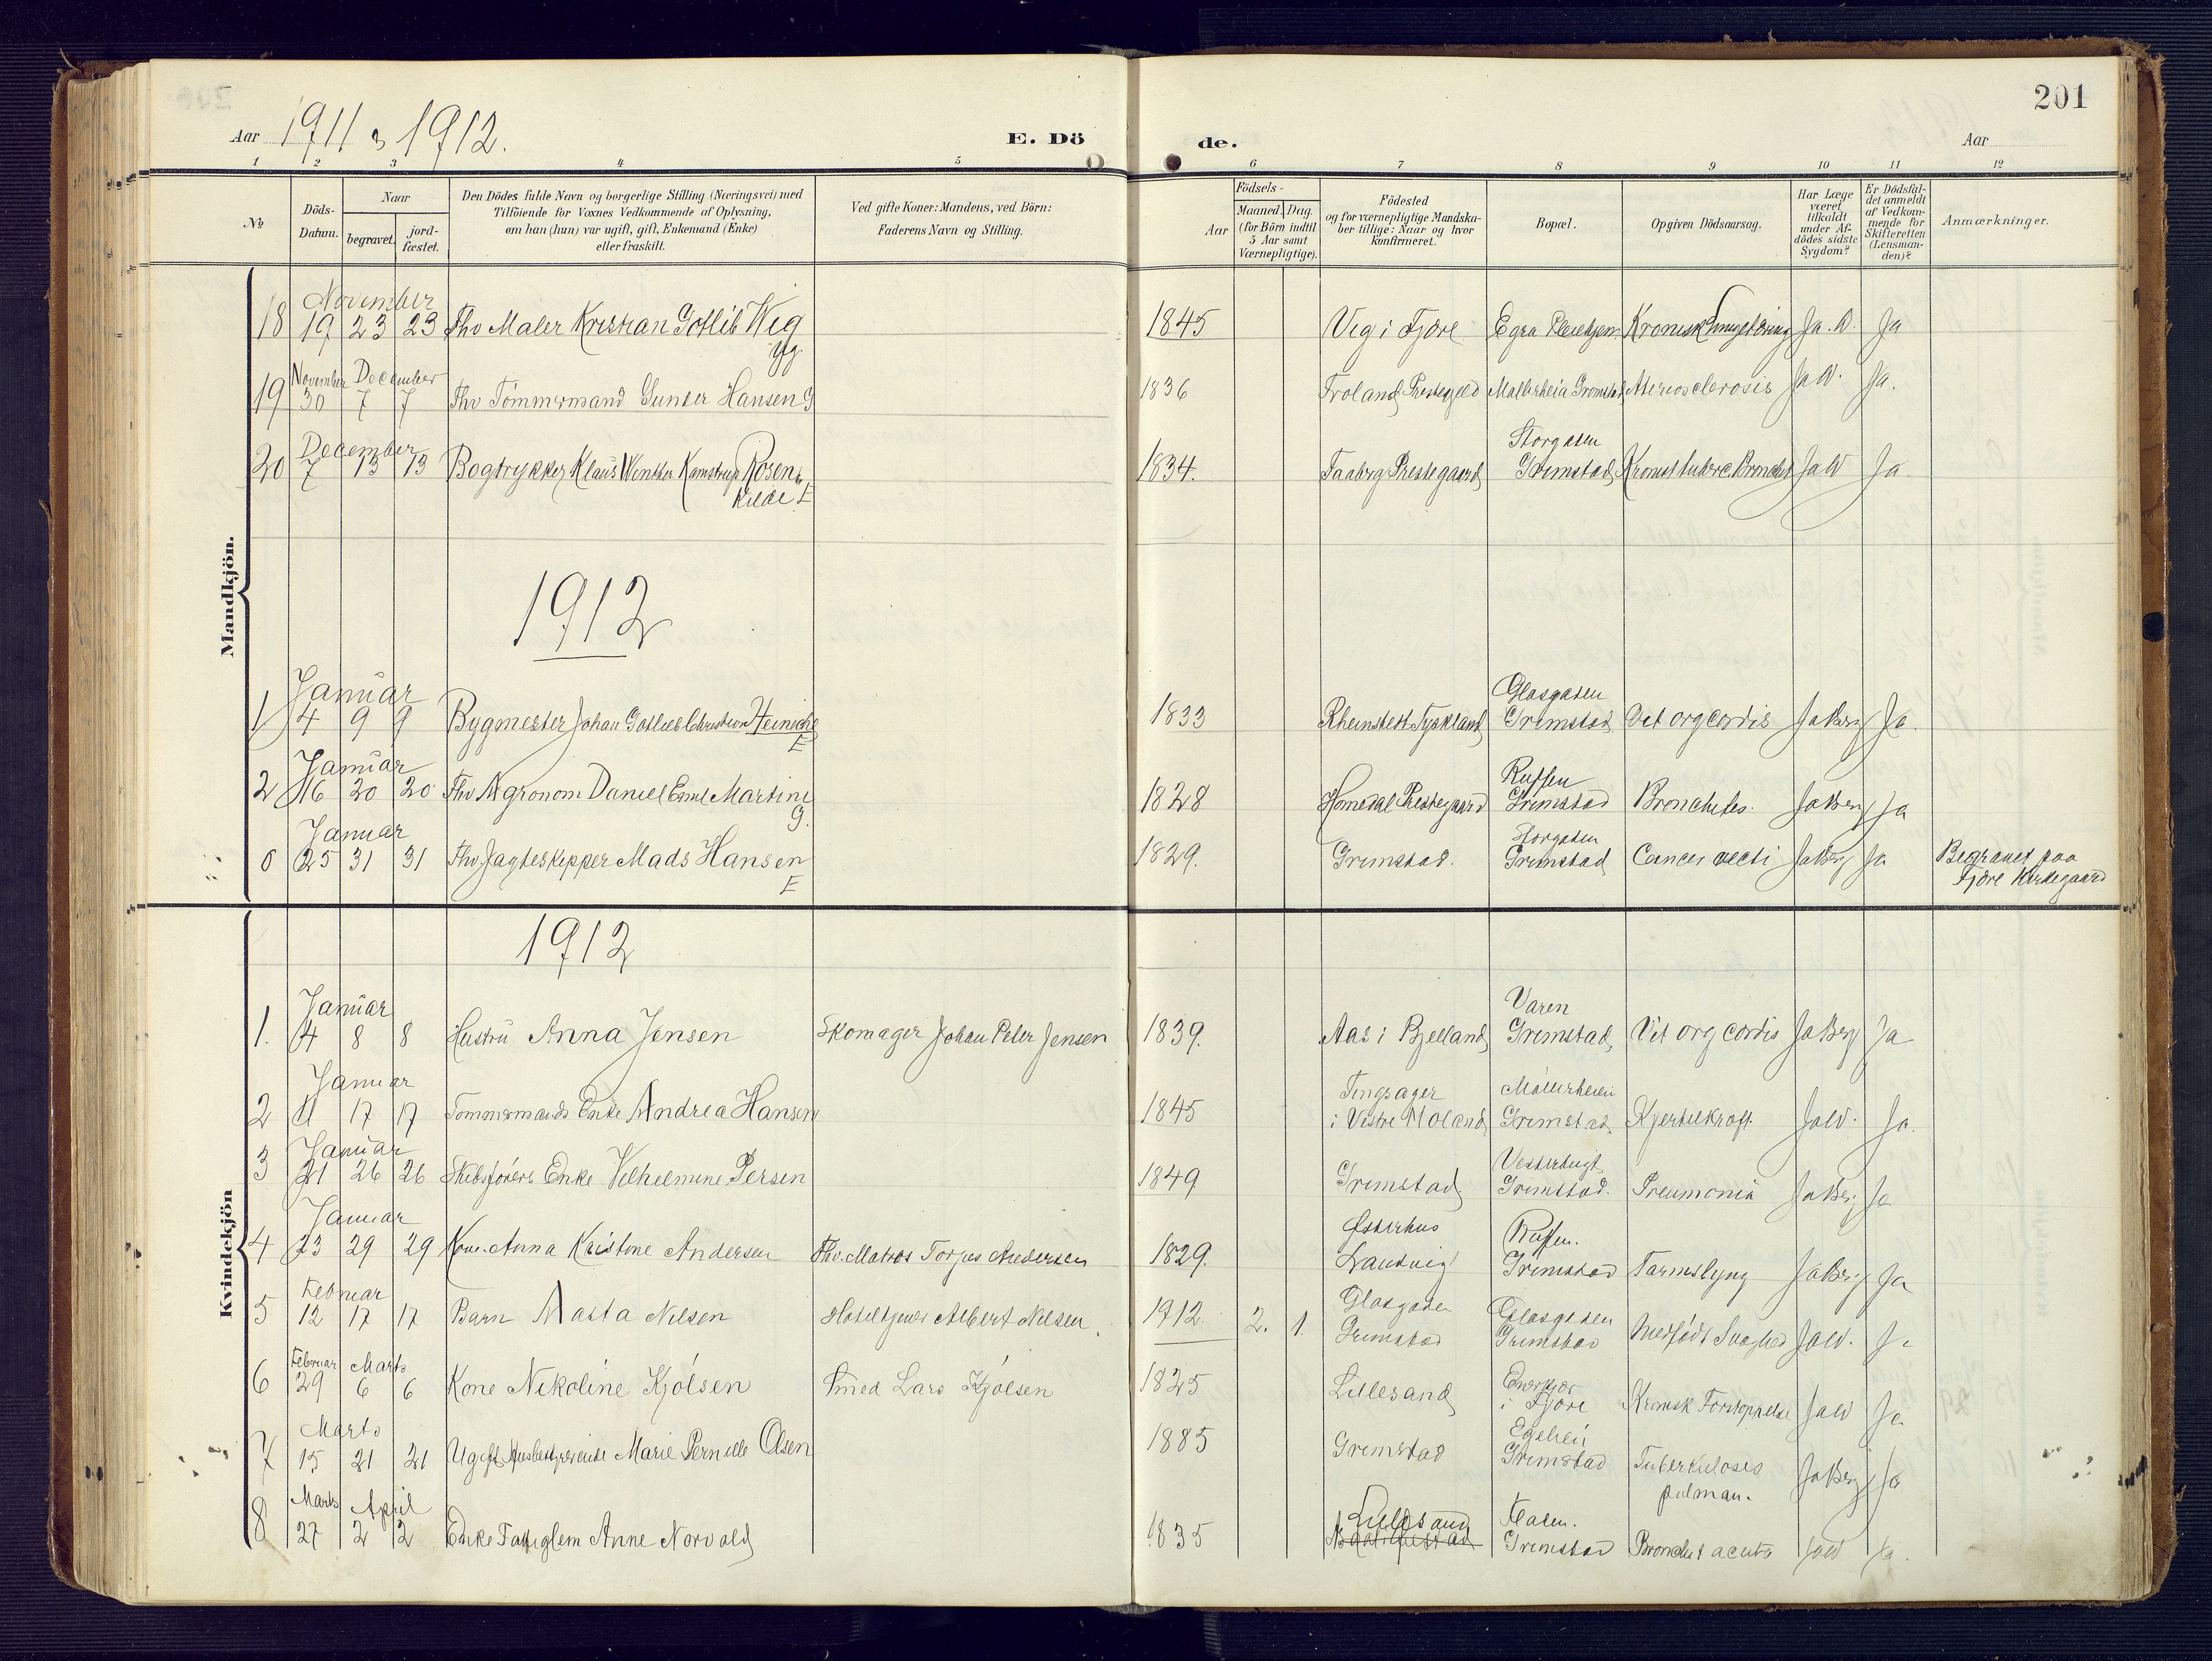 201
Aar 1911 & 1912.
E. Dö
de.
Aar
1 2 3 4 5 6 7 8 9 10 11 12
No
Döds-
Datum.
Naar
begravet.
jord-
fæstet.
Den Dödes fulde Navn og borgerlige Stilling (Næringsvei) med
Tilföiende for Voxnes Vedkommende af Oplysning,
om han (hun) var ugift, gift, Enkemand (Enke)
eller fraskilt.
Ved gifte Koner: Mandens, ved Börn:
Faderens Navn og Stilling.
Aar
Födsels-
Maaned. Dag.
(for Börn indtil
5 Aar samt
Værnepligtige).
Födested
og for værnepligtige Mandska-
ber tillige: Naar og hvor
konfirmeret.
Bopæl.
Opgiven Dödsaarsag.
Har Læge
været
tilkaldt
under Af-
dödes sidste
Sygdom?
Er Dödsfal-
det anmeldt
af Vedkom-
mende for
Skifteretten
(Lensman-
den)?
Anmærkninger.
Mandkjön.
November
18 19 23 23 Fhv Maler Kristian Gotlib Vig 1845 Vig i Fjære Egra Pleiehjem Kronisk Ja. W. Ja
yg.
November December
19 30 7 7 Fhv Tömmermand Gunder Hansen G 1836 Froland Prestegjeld Møllerheia Grimstad Ateriosclerosis Ja W. Ja.
December Storgaten
20 7 13 13 Bogtrykker Klaus Winther Kamstrup Rosen- 1834. Faaberg Prestegaard Grimstad Ja W Ja
kilde. E
1912
Januar Glasgaten
1 4 9 9 Bygmester Johan Gotlieb Christian Heiniche 1833 Rheinstedt Tyskland Grimstad Vit org cordis Ja Berg Ja.
E
Januar Ruffen
2 16 20 20 Fhv Agronom Daniel Emil Martini 1828 Homedal Prestegaard Grimstad Bronchites. Ja Berg Ja
G.
Januar Storgaten
0 25 31 31 Fhv Jagteskipper Mads Hansen 1829. Grimstad. Grimstad Cancer recti Ja Berg Ja Begravet paa
E Fjære Kirkegaard
Kvindekjön
1912
Januar Varen
1. 4 8 8 Hustru Anna Jensen Skomager Johan Peter Jensen 1839. Aas i Bjelland Grimstad, Vit org cordis Ja Berg Ja
Januar Tingsager Møllerheien
2 11 17 17 Tommermands Enke Andrea Hansen 1845 i Vestre Moland Grimstad, Kjertelkræft. Ja W. Ja.
Januar Vesterbugt
3 21 26 26 Skibsförers Enke Vilhelmine Persen 1849 Grimstad Grimstad. Pneumonia Ja Berg Ja
Januar Østerhus Ruffen.
4 23 29 29 Kone. Anna Kristine Andersen Fhv. Matros Torjus Andersen 1829. Landvig Grimstad Tarmslyng Ja Berg Ja
Februar Glasgaten Glasgaten
5 12 17 17 Barn Masta Nilsen Hoteltjener Albert Nilsen. 1912. 2. 1. Grimstad Grimstad Medfødt Svaghed Ja W. Ja
Februar Marts
6 29 6 6 Kone Nikoline Kjölsen Smed Lars Kjölsen 1825 Lillesand i Fjære Kronisk Forstoppelse Ja W Ja
Marts Egeheii
7 15 21 21 Ugift Husbestyrerinde Marie Pernille Olsen 1885 Grimstad Grimstad Tuberkuloses Ja Berg Ja
pulman.
Marts April Lillesand
8 27 2 2 Enke Anne Norvald 1835 Grimstad Bronchit acuta Ja W Ja.